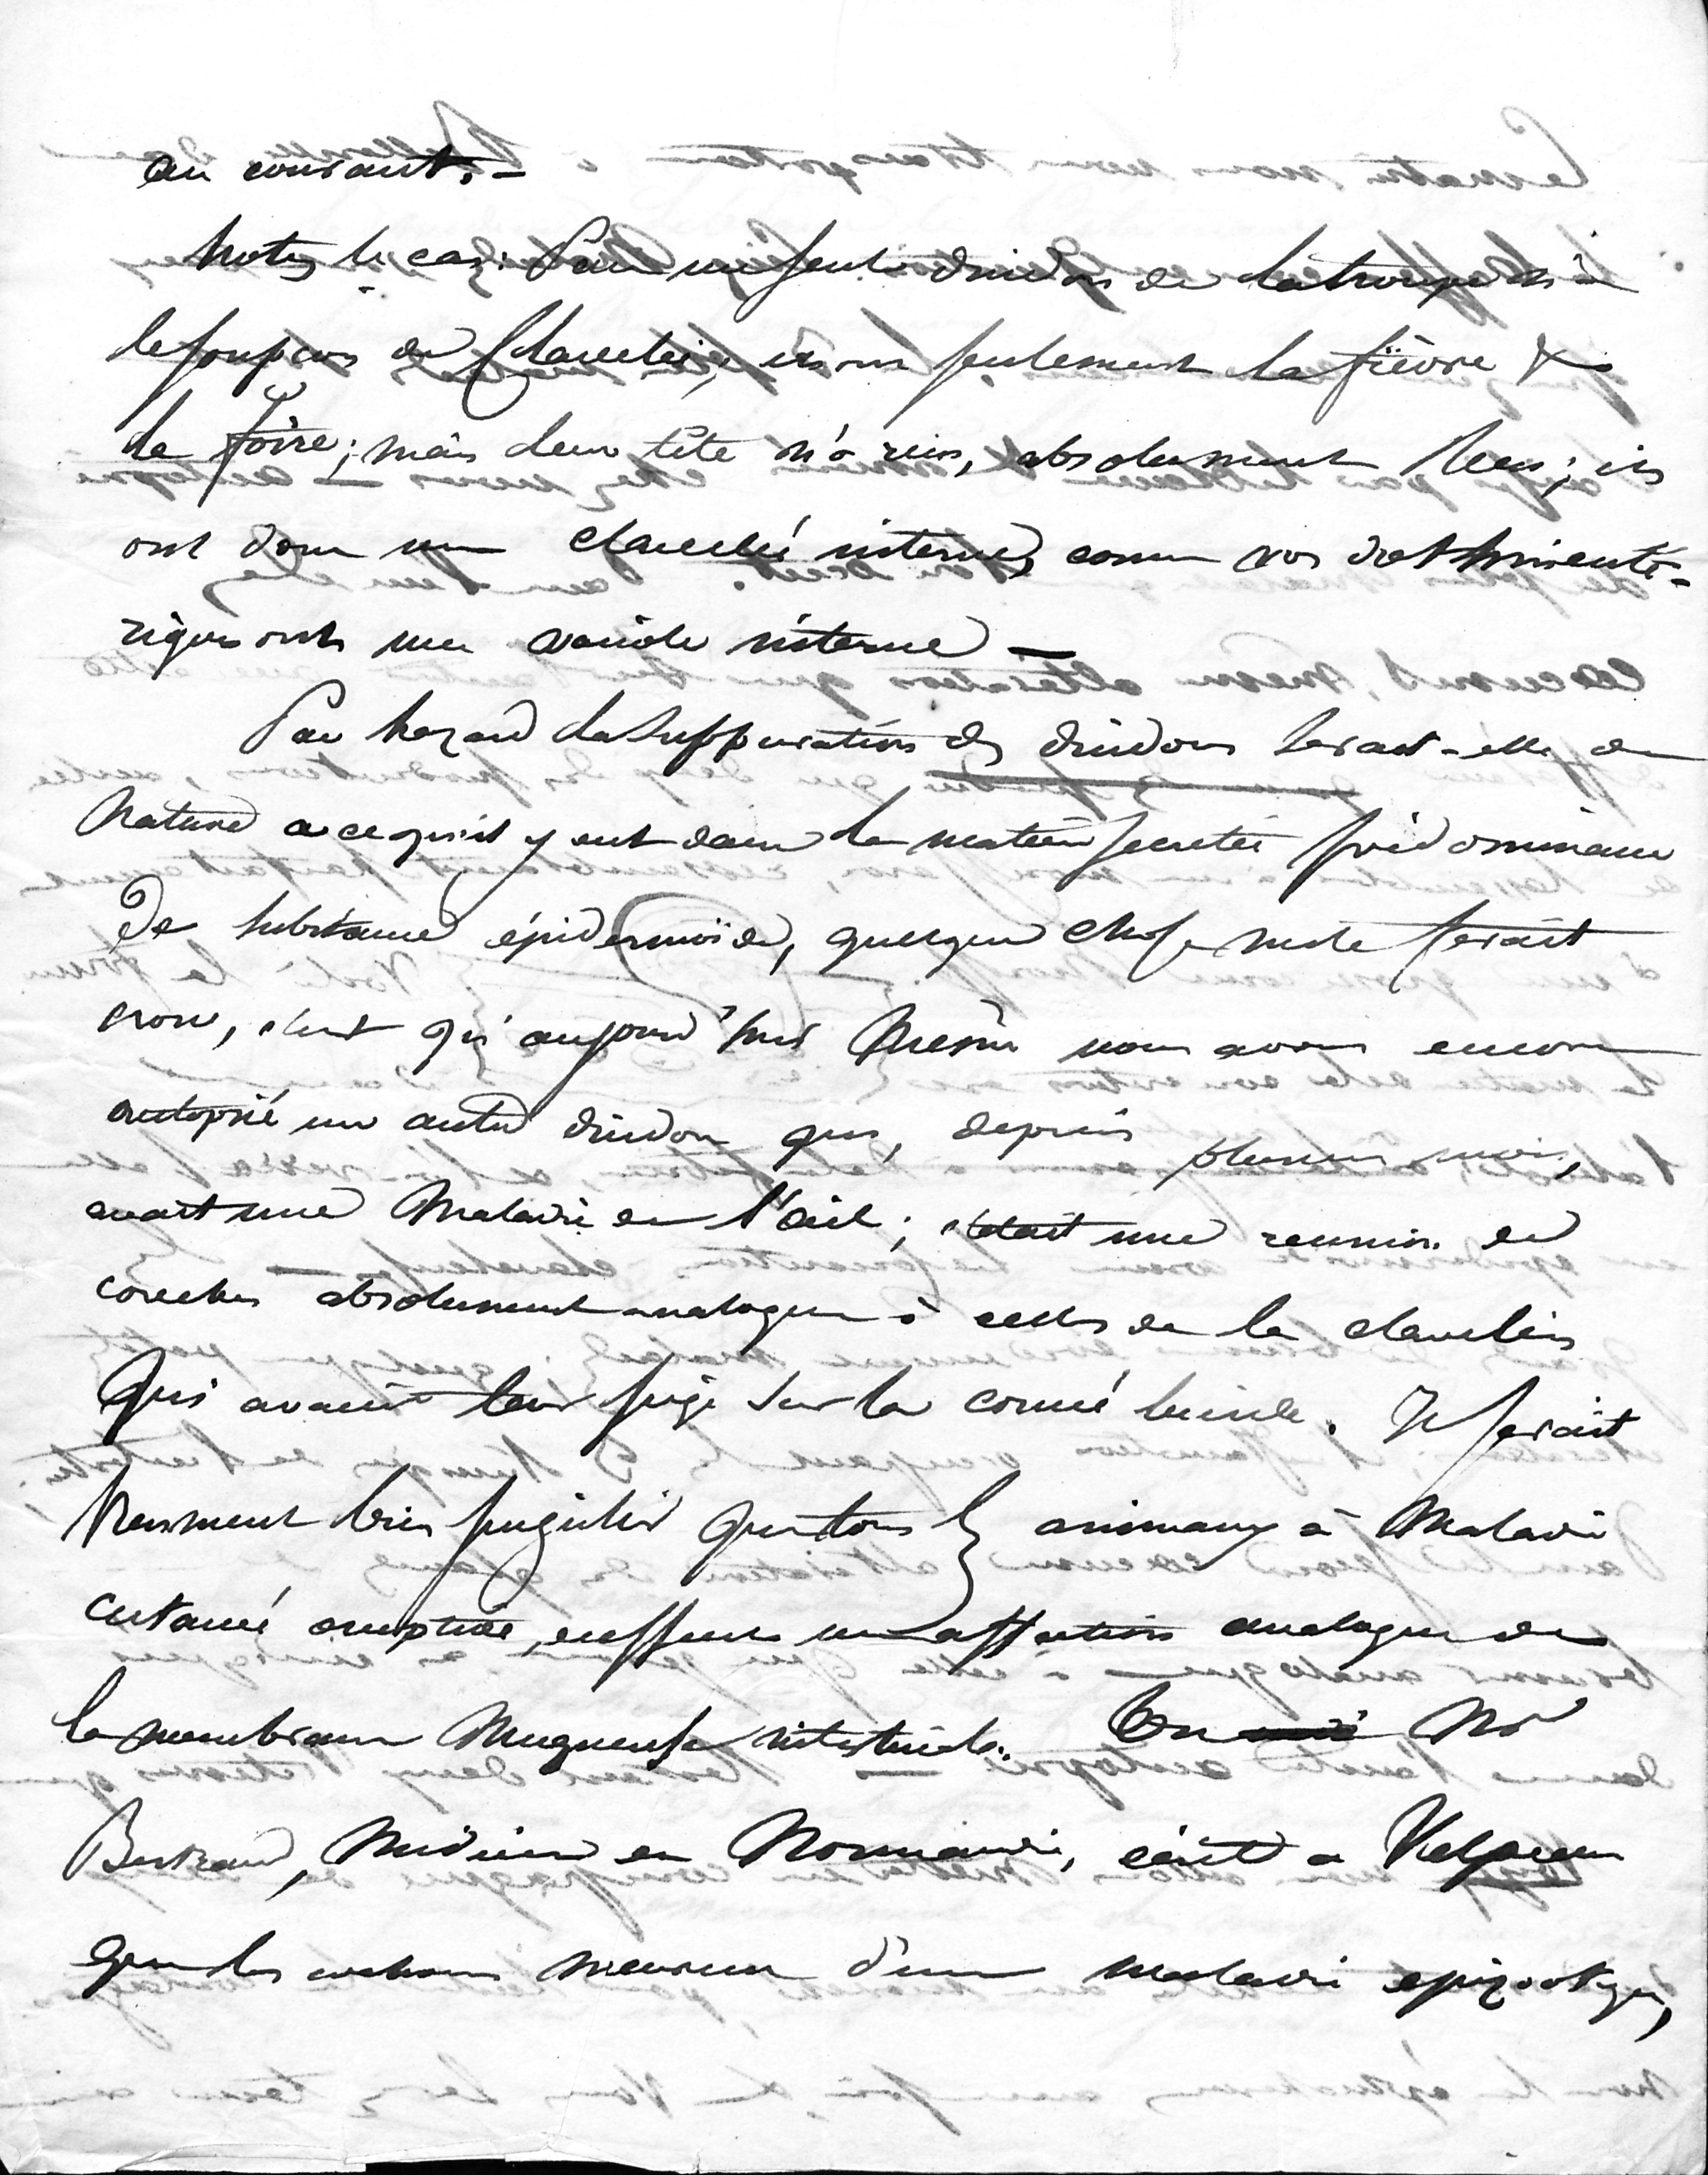 au courant. -
Notez le cas: Pas un seul dindon de la troupe n'a
le soupçon de clavelée; ils ont seulement la fièvre &
la foire; mais leur tête n'a rien, absolument rien; ils
ont donc une clavelée interne, comme vos dothinenté-
riques ont une variole interne —
Par hazard la suppuration des dindons serait-elle de
nature a ce qu'il y eut dans la matière secretée prédominance
de substance épidermoïde, quelque chose me le ferait
croire, c'est qu'aujourd'hui même nous avons encore
autopsié un autre dindon qui, depuis plusieurs mois,
avait une maladie de l'œil; c'était une reunion de
couches absolument analogues à celles de la clavelée
qui avaient leur siège sur la cornée lucide. Il serait
vraiment bien singulier que tous les animaux à maladie
cutanée eruptive, eussent une affection analogue de
la membrane muqueuse intestinale. Un Mr
Bertrand, médecin en Normandie, écrit a Velpeau
que les cochons meurent d'une maladie epizootique,